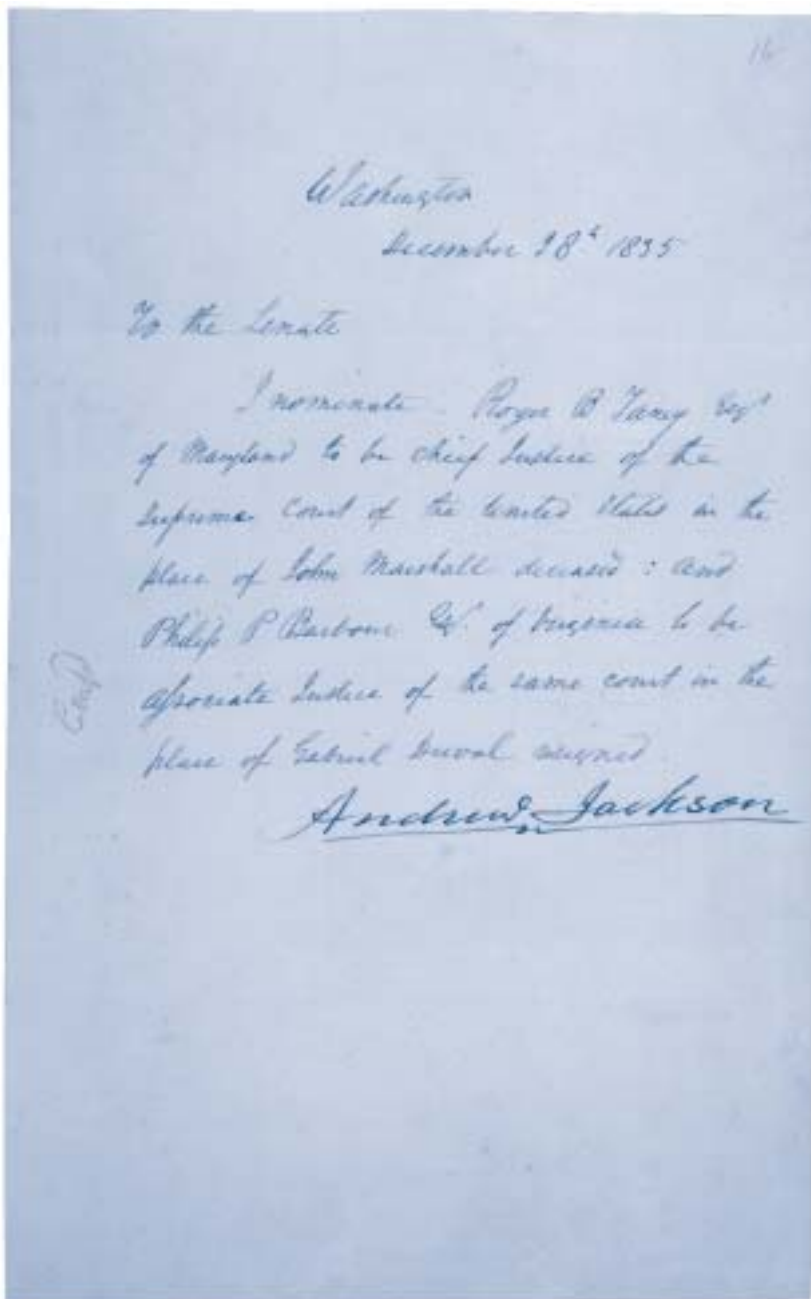 16
Washington
December 28th 1835
To the Senate
I nominate Roger B Taney Esqr
of Maryland to be chief Justice of the
Supreme Court of the United States in the
place of John Marshall deceased : and
Philip P Barbour Esqr of Virginia to be
associate Justice of the same court in the
place of Gabriel Duval resigned
Andrew Jackson